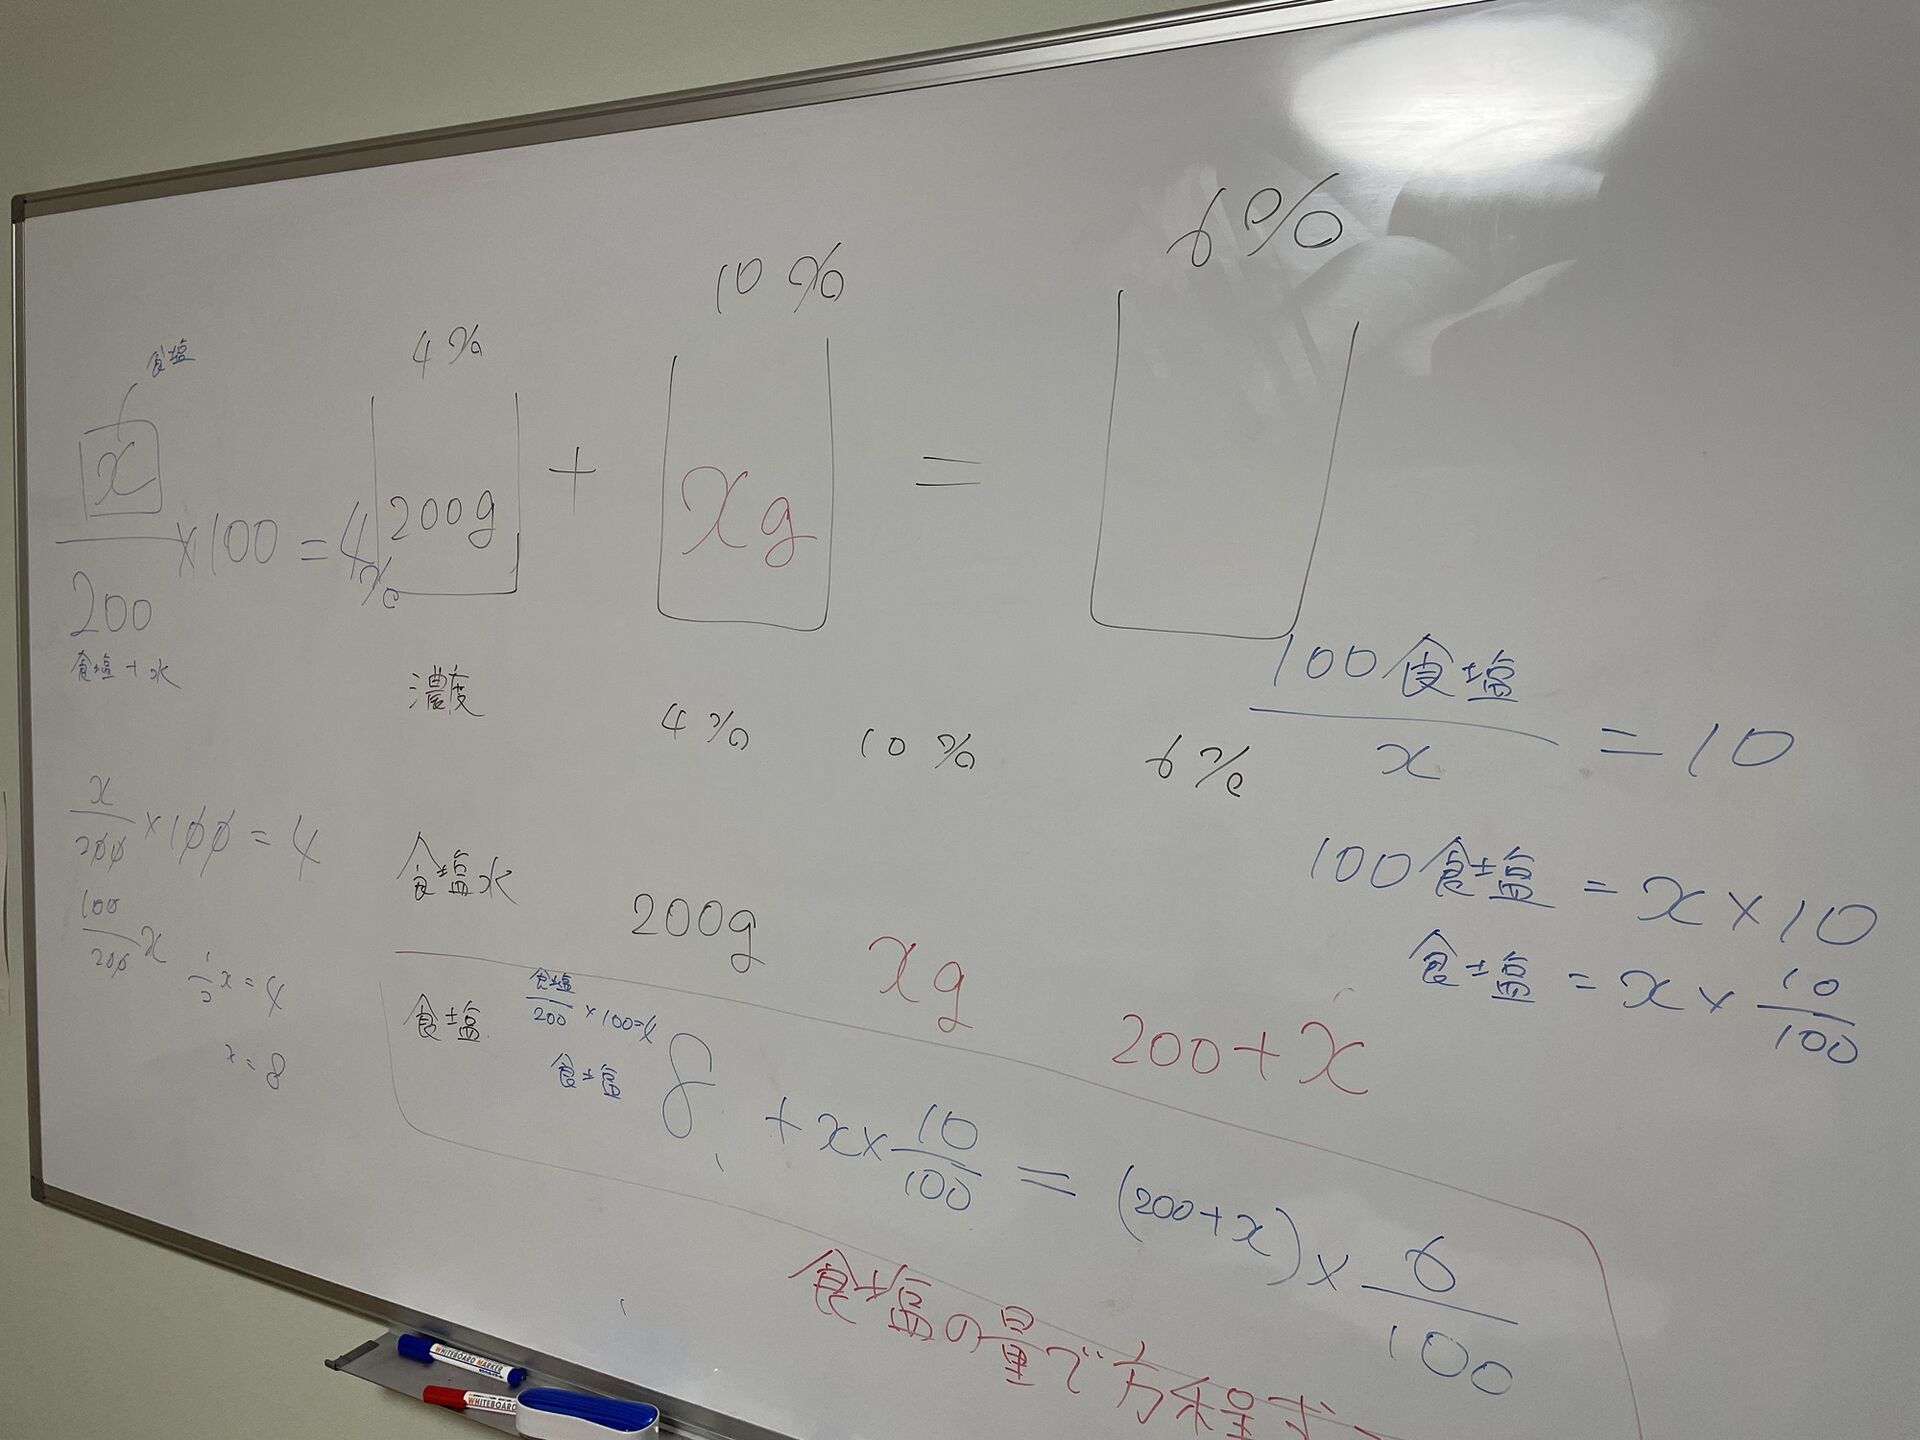 6%
10%
4%
食塩
x
200g + xg =
― ×100 = 4%
200
食塩+水
濃度 4% 10% 6%
100食塩/x = 10
x/200 ×100 = 4
100/200 x
1/2 x = 4
x = 8
食塩水 200g xg 200+x
100食塩 = x×10
食塩 = x×10/100
食塩 食塩/200 ×100=4
食塩 8 + x×10/100 = (200+x)×6/100
食塩の量で方程式
WHITEBOARD MARKER
WHITEBOARD